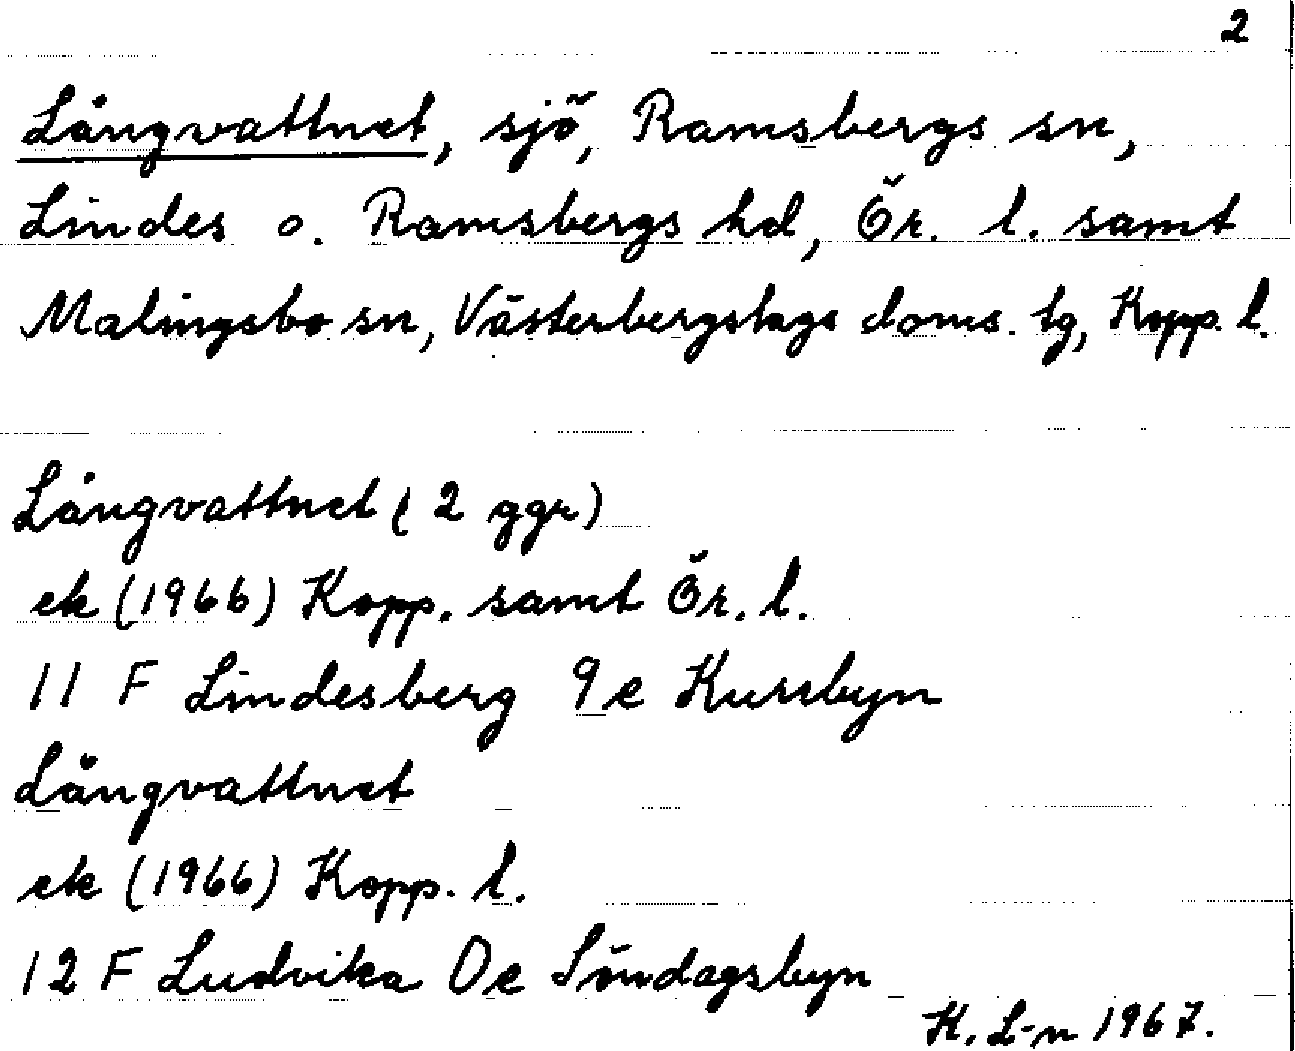 2
Långvattnet, sjö, Ramsbergs sn,
Lindes o. Ramsbergs hd, Ör. l. samt
Malingsbo sn, Västerbergslags doms. tg, Kopp. l.
Långvattnet (2 ggr)
ek (1966) Kopp. samt Ör. l.
11 F Lindesberg 9e Kursbyn
Långvattnet
ek (1966) Kopp. l.
12 F Ludvika 0e Söndagsbyn
K. L-n 1967.